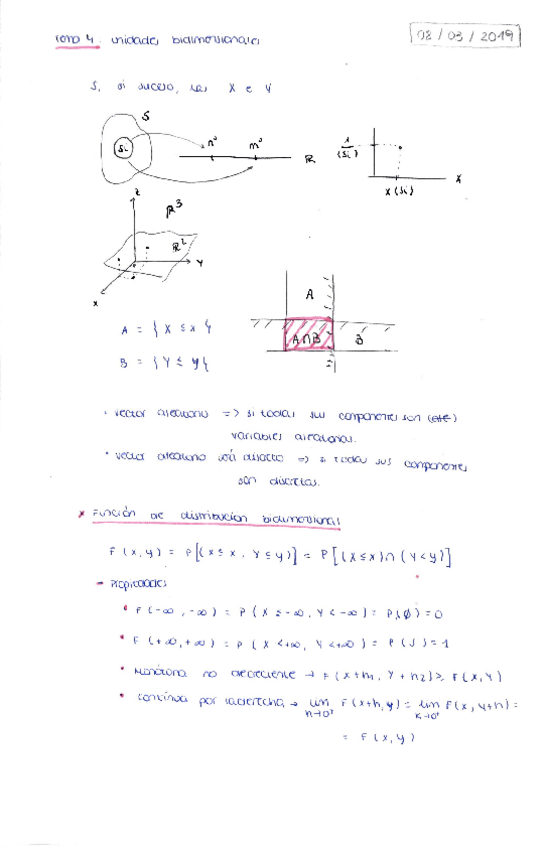 Tema 4. unidades bidimensionales
08 / 03 / 2019
S, si suceso, X e Y
S
Si
nº mº
R
(Si)
X
X (Si)
Z
R3
R2
Y
X
A
A∩B B
A = { X ≤ x }
B = { Y ≤ y }
• vector aleatorio => si todas sus componentes son
variables aleatorias.
• vector aleatorio será discreto => si todas sus componentes
son discretas.
* Función de distribución bidimensional
F (x, y) = P[(X ≤ x, Y ≤ y)] = P[(X ≤ x) ∩ (Y < y)]
- Propiedades
• F (-∞, -∞) = P (X ≤ -∞, Y < -∞) = P(∅) = 0
• F (+∞, +∞) = P (X < +∞, Y < +∞) = P (S) = 1
• Monótona no decreciente → F (x + h1, Y + h2) ≥ F (x, Y)
• continua por la derecha → lim F (x+h, y) = lim F (x, y+h) =
h→0+ k→0+
= F (x, y)